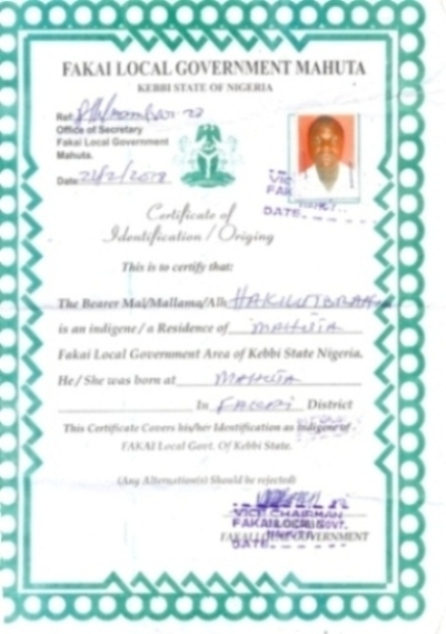 FAKAI LOCAL GOVERNMENT MAHUTA
KEBBI STATE OF NIGERIA
Ref:
Office of Secretary
Fakai Local Government
Mahuta.
Date:
VIC
FAK
DATE
Certificate of
Identification / Origing
This is to certify that:
The Bearer Mal/Mallama/Alh HAKILU IBRAHIM
is an indigene / a Residence of MAHUTA
Fakai Local Government Area of Kebbi State Nigeria.
He / She was born at MAHUTA
In FAKAI District
This Certificate Covers his/her Identification as indigene of
FAKAI Local Govt. Of Kebbi State.
(Any Alternation(s) Should be rejected)
VICE CHAIRMAN
FAKAI LOCAL GOVT.
FAKAI LOCAL GOVERNMENT
DATE